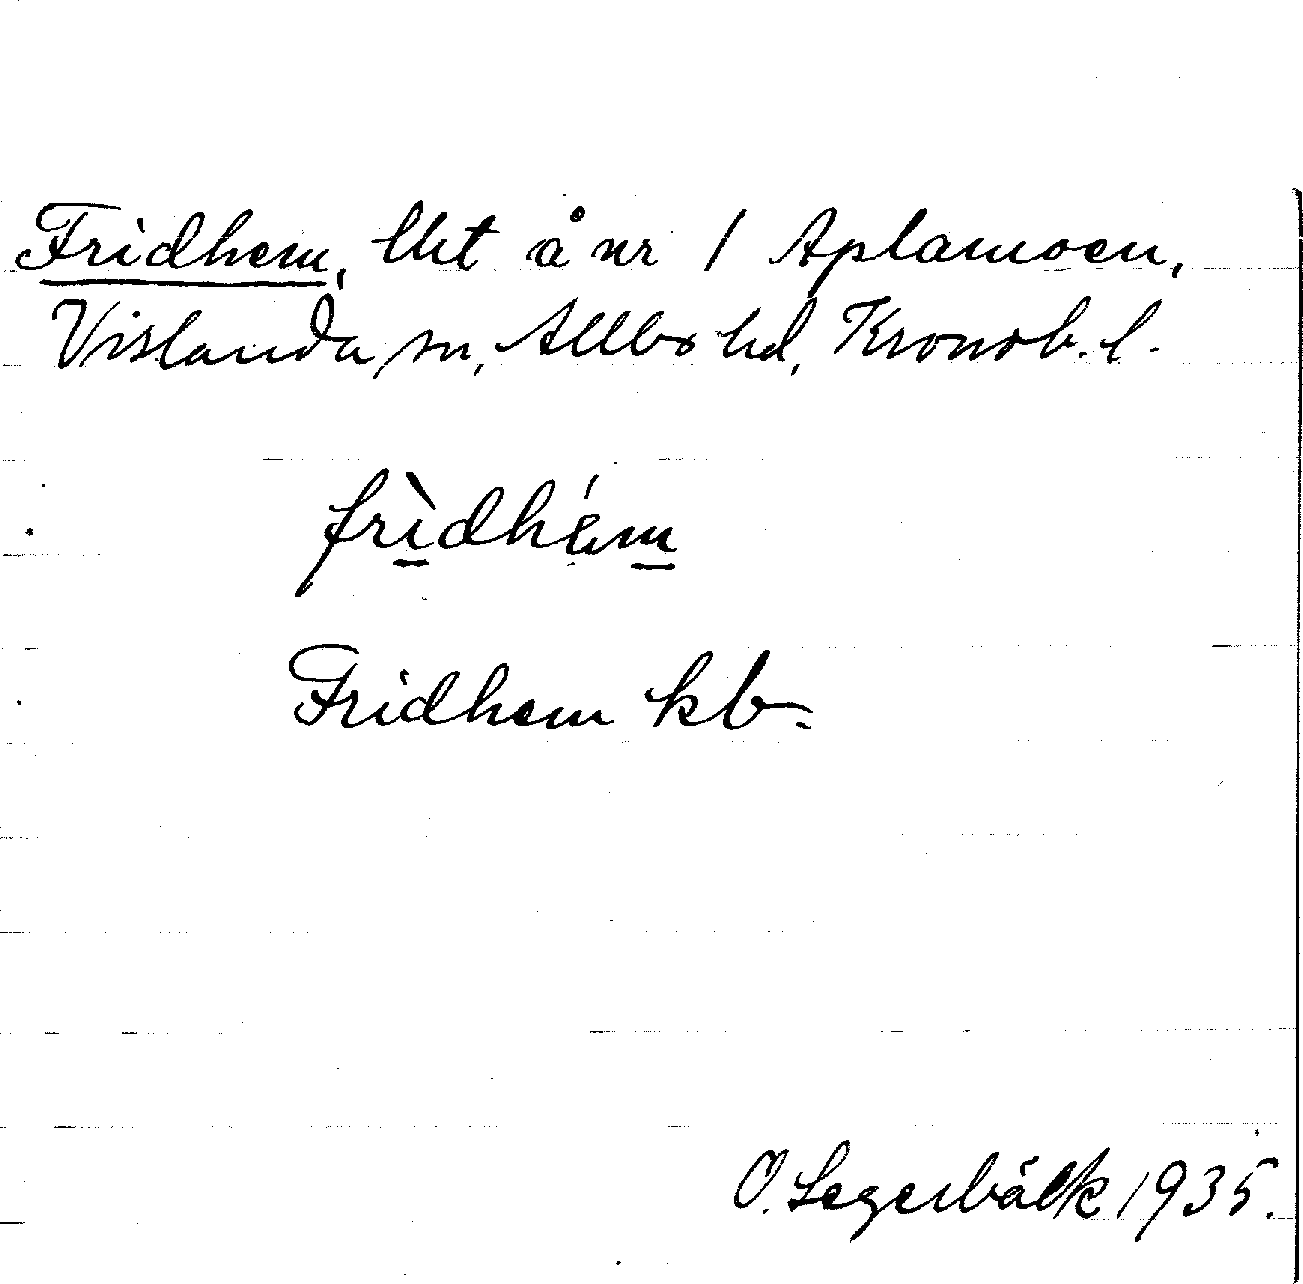 Fridhem, lht å nr 1 Aplamoen,
Vislanda sn, Allbo hd, Kronob. l.
frìdhém
Fridhem kb.
O. Legerbälk 1935.